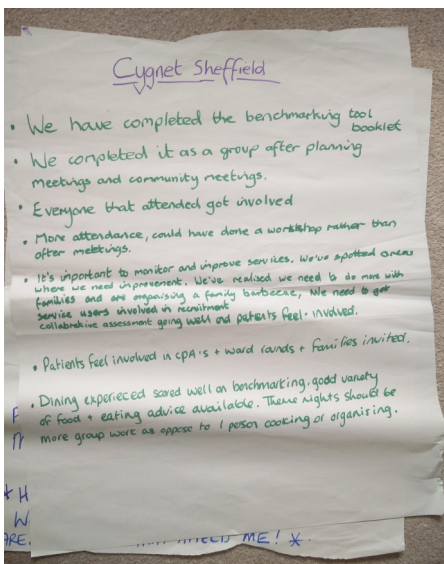 Cygnet Sheffield
• We have completed the benchmarking tool
booklet
• We completed it as a group after planning
meetings and community meetings.
• Everyone that attended got involved
• More attendance, could have done a workshop rather than
after meetings.
• It's important to monitor and improve services. We've spotted areas
where we need improvement. We've realised we need to do more with
families and are organising a family barbecue, We need to get
service users involved in recruitment
collaborative assessment going well and patients feel. involved.
• Patients feel involved in CPA's + ward rounds + families invited.
• Dining experieced scored well on benchmarking. good variety
of food + eating advice available. Theme nights should be
more group work as oppose to 1 person cooking or organising.
* H
W
ARE.
ME! *